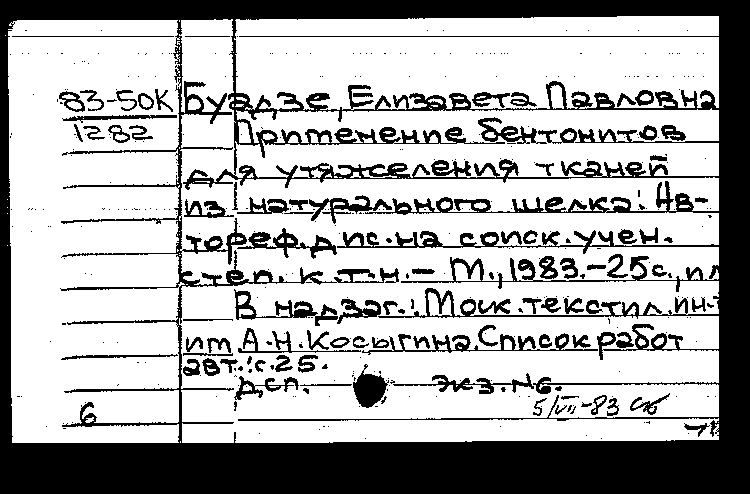 83-50К Буадзе, Елизавета Павловна
1282 Применение бентонитов
для утяжеления тканей
из натурального шелка: Ав-
тореф. дис. на соиск. учен.
степ. к.т.н. – М., 1983.–25с., ил
В надзаг.: Моск. текстил. ин-т
им А.Н. Косыгина. Список работ
авт.: с.25.
Дсп. экз. №6.
6 5/VII-83